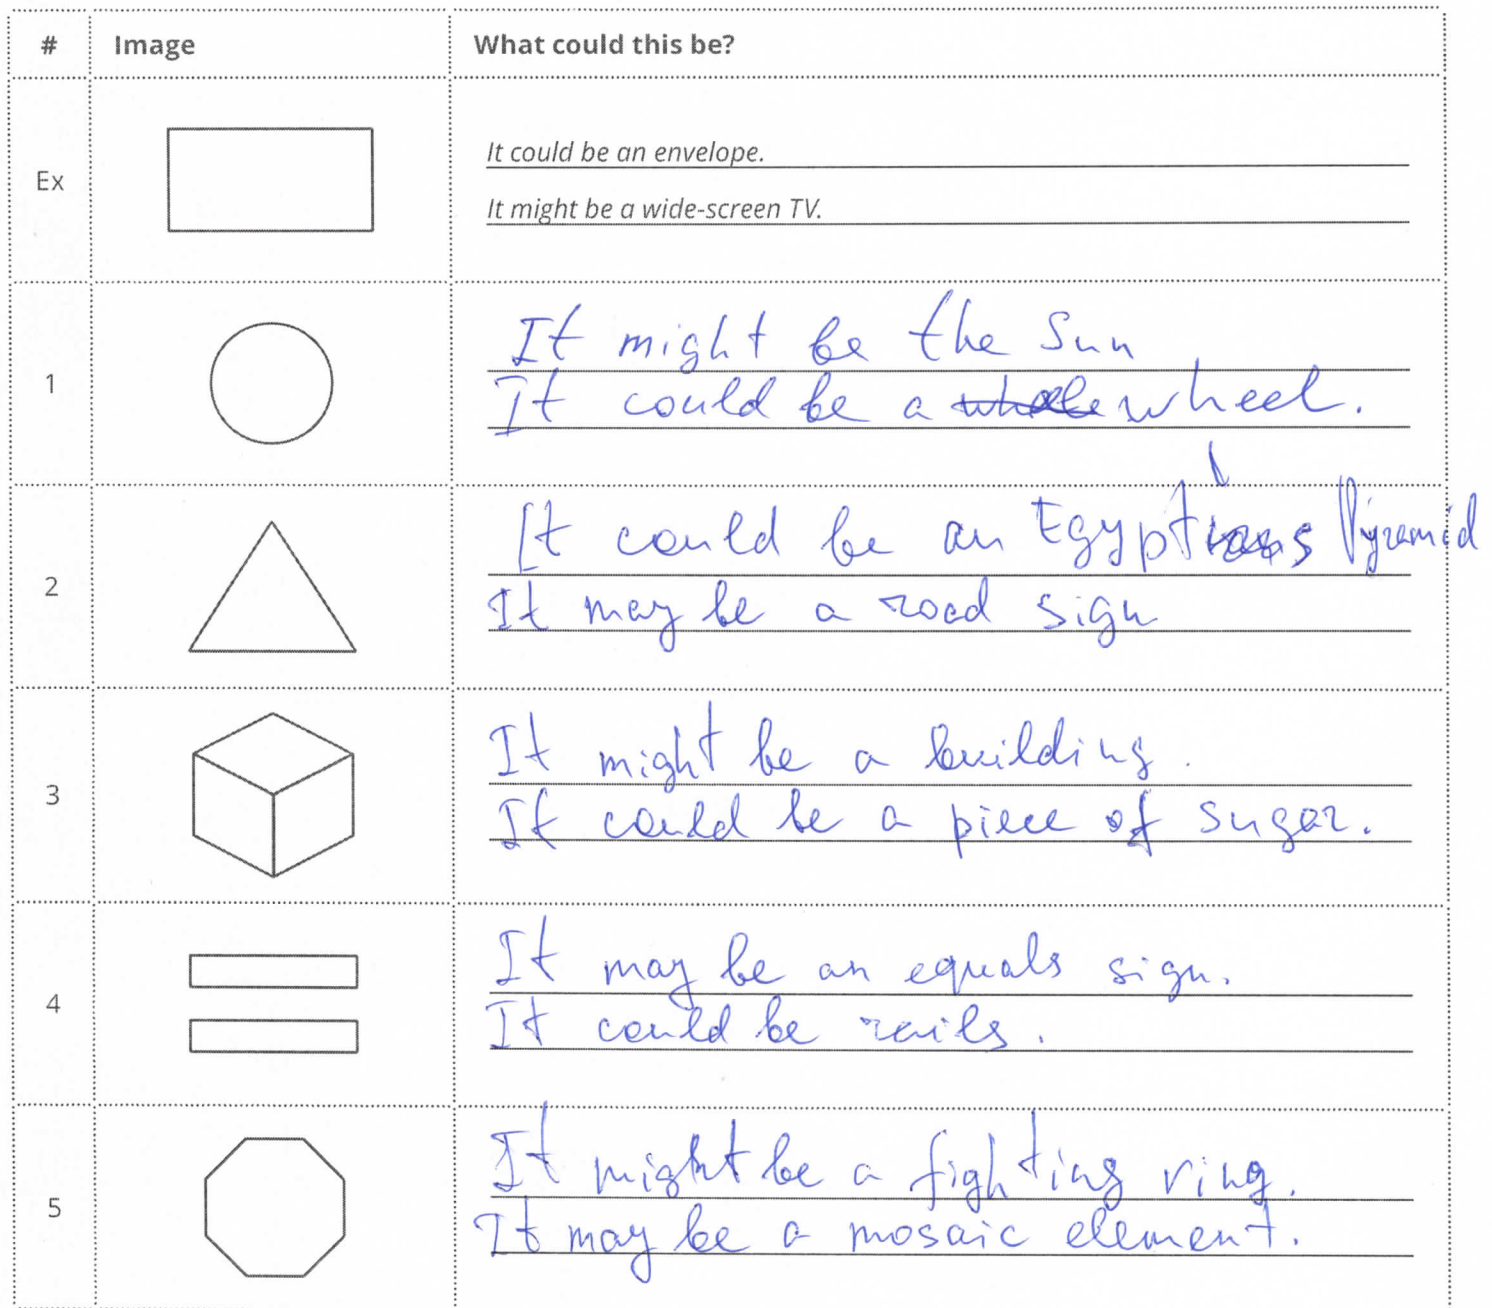 # Image What could this be?
Ex
It could be an envelope.
It might be a wide-screen TV.
1
It might be the Sun
It could be a wheel.
2
It could be an Pyramid
It may be a road sign
3
It might be a building.
It could be a piece of sugar.
4
It may be an equals sign.
It could be rails.
5
It might be a fighting ring.
It may be a mosaic element.